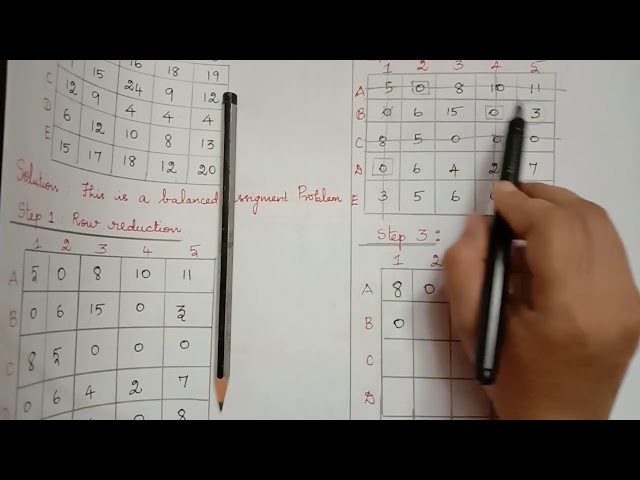 16 18 19
C 1 15 24 9 12
D 12 9 4 4 4
E 6 12 10 8 13
15 17 18 12 20
Solution This is a balanced assigment Problem
Step 1 : Row reduction
1 2 3 4 5
A 5 0 8 10 11
B 0 6 15 0 3
C 8 5 0 0 0
0 6 4 2 7
0 8
1 2 3 4 5
A 5 0 8 10 11
B 0 6 15 0 3
C 8 5 0 0 0
D 0 6 4 2 7
E 3 5 6
Step 3 :
1 2
A 8 0
B 0
C
D